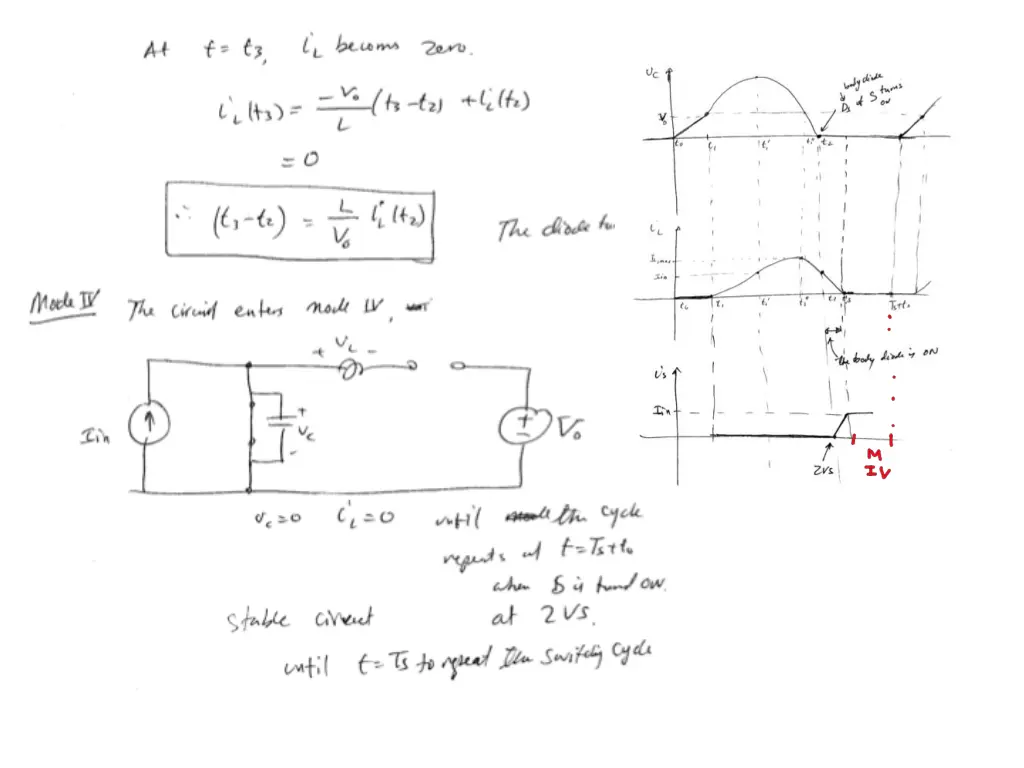 At t = t3, iL becoms zero.
iL(t3) = -Vo/L (t3 - t2) + iL(t2)
= 0
∴ (t3 - t2) = L/Vo iL(t2)
The diode
Mode IV The circuit enters mode IV,
+ VL -
Iin
+
Vc
-
+
-
Vo
vc=0 iL=0 until the cycle
repeats at t=Ts+to
when S is turned ON.
stable circuit at ZVS.
until t = Ts to repeat the switching cycle
Vc
body diode
Ds of S turns
ON
Vo
to t1 t1' t1" t2
iL
IL,max
Iin
to t1 t1' t1" t2 t3 Ts+to
the body diode is ON
is
Iin
ZVS
M
IV